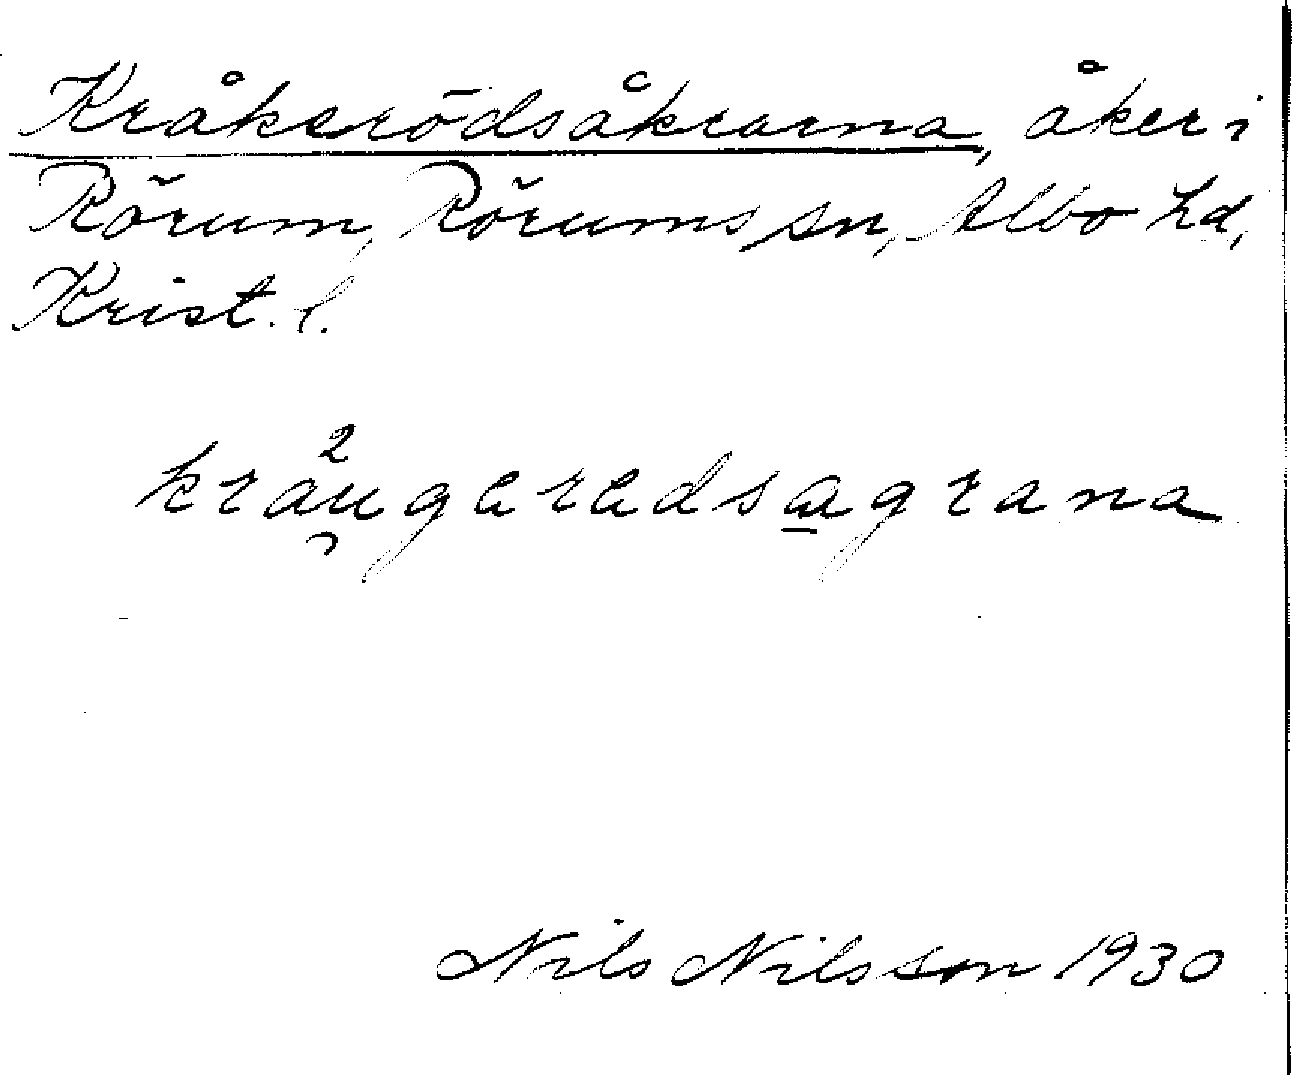 Kråkerödsåkrarna, åker i
Rörum, Rörums sn, Albo hd,
Krist. l.
kråugeredsagrana
Nils Nilsson 1930